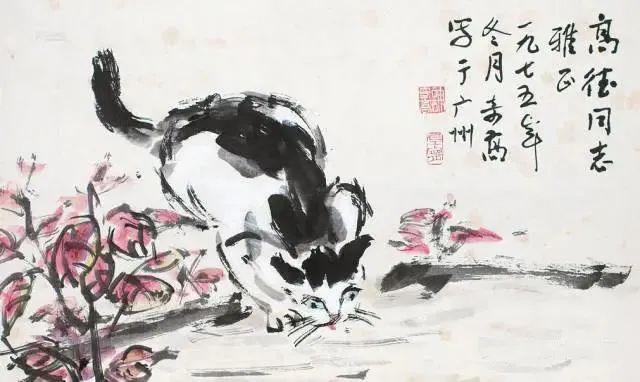 高德同志
雅正
一九七五年
冬月
写于广州